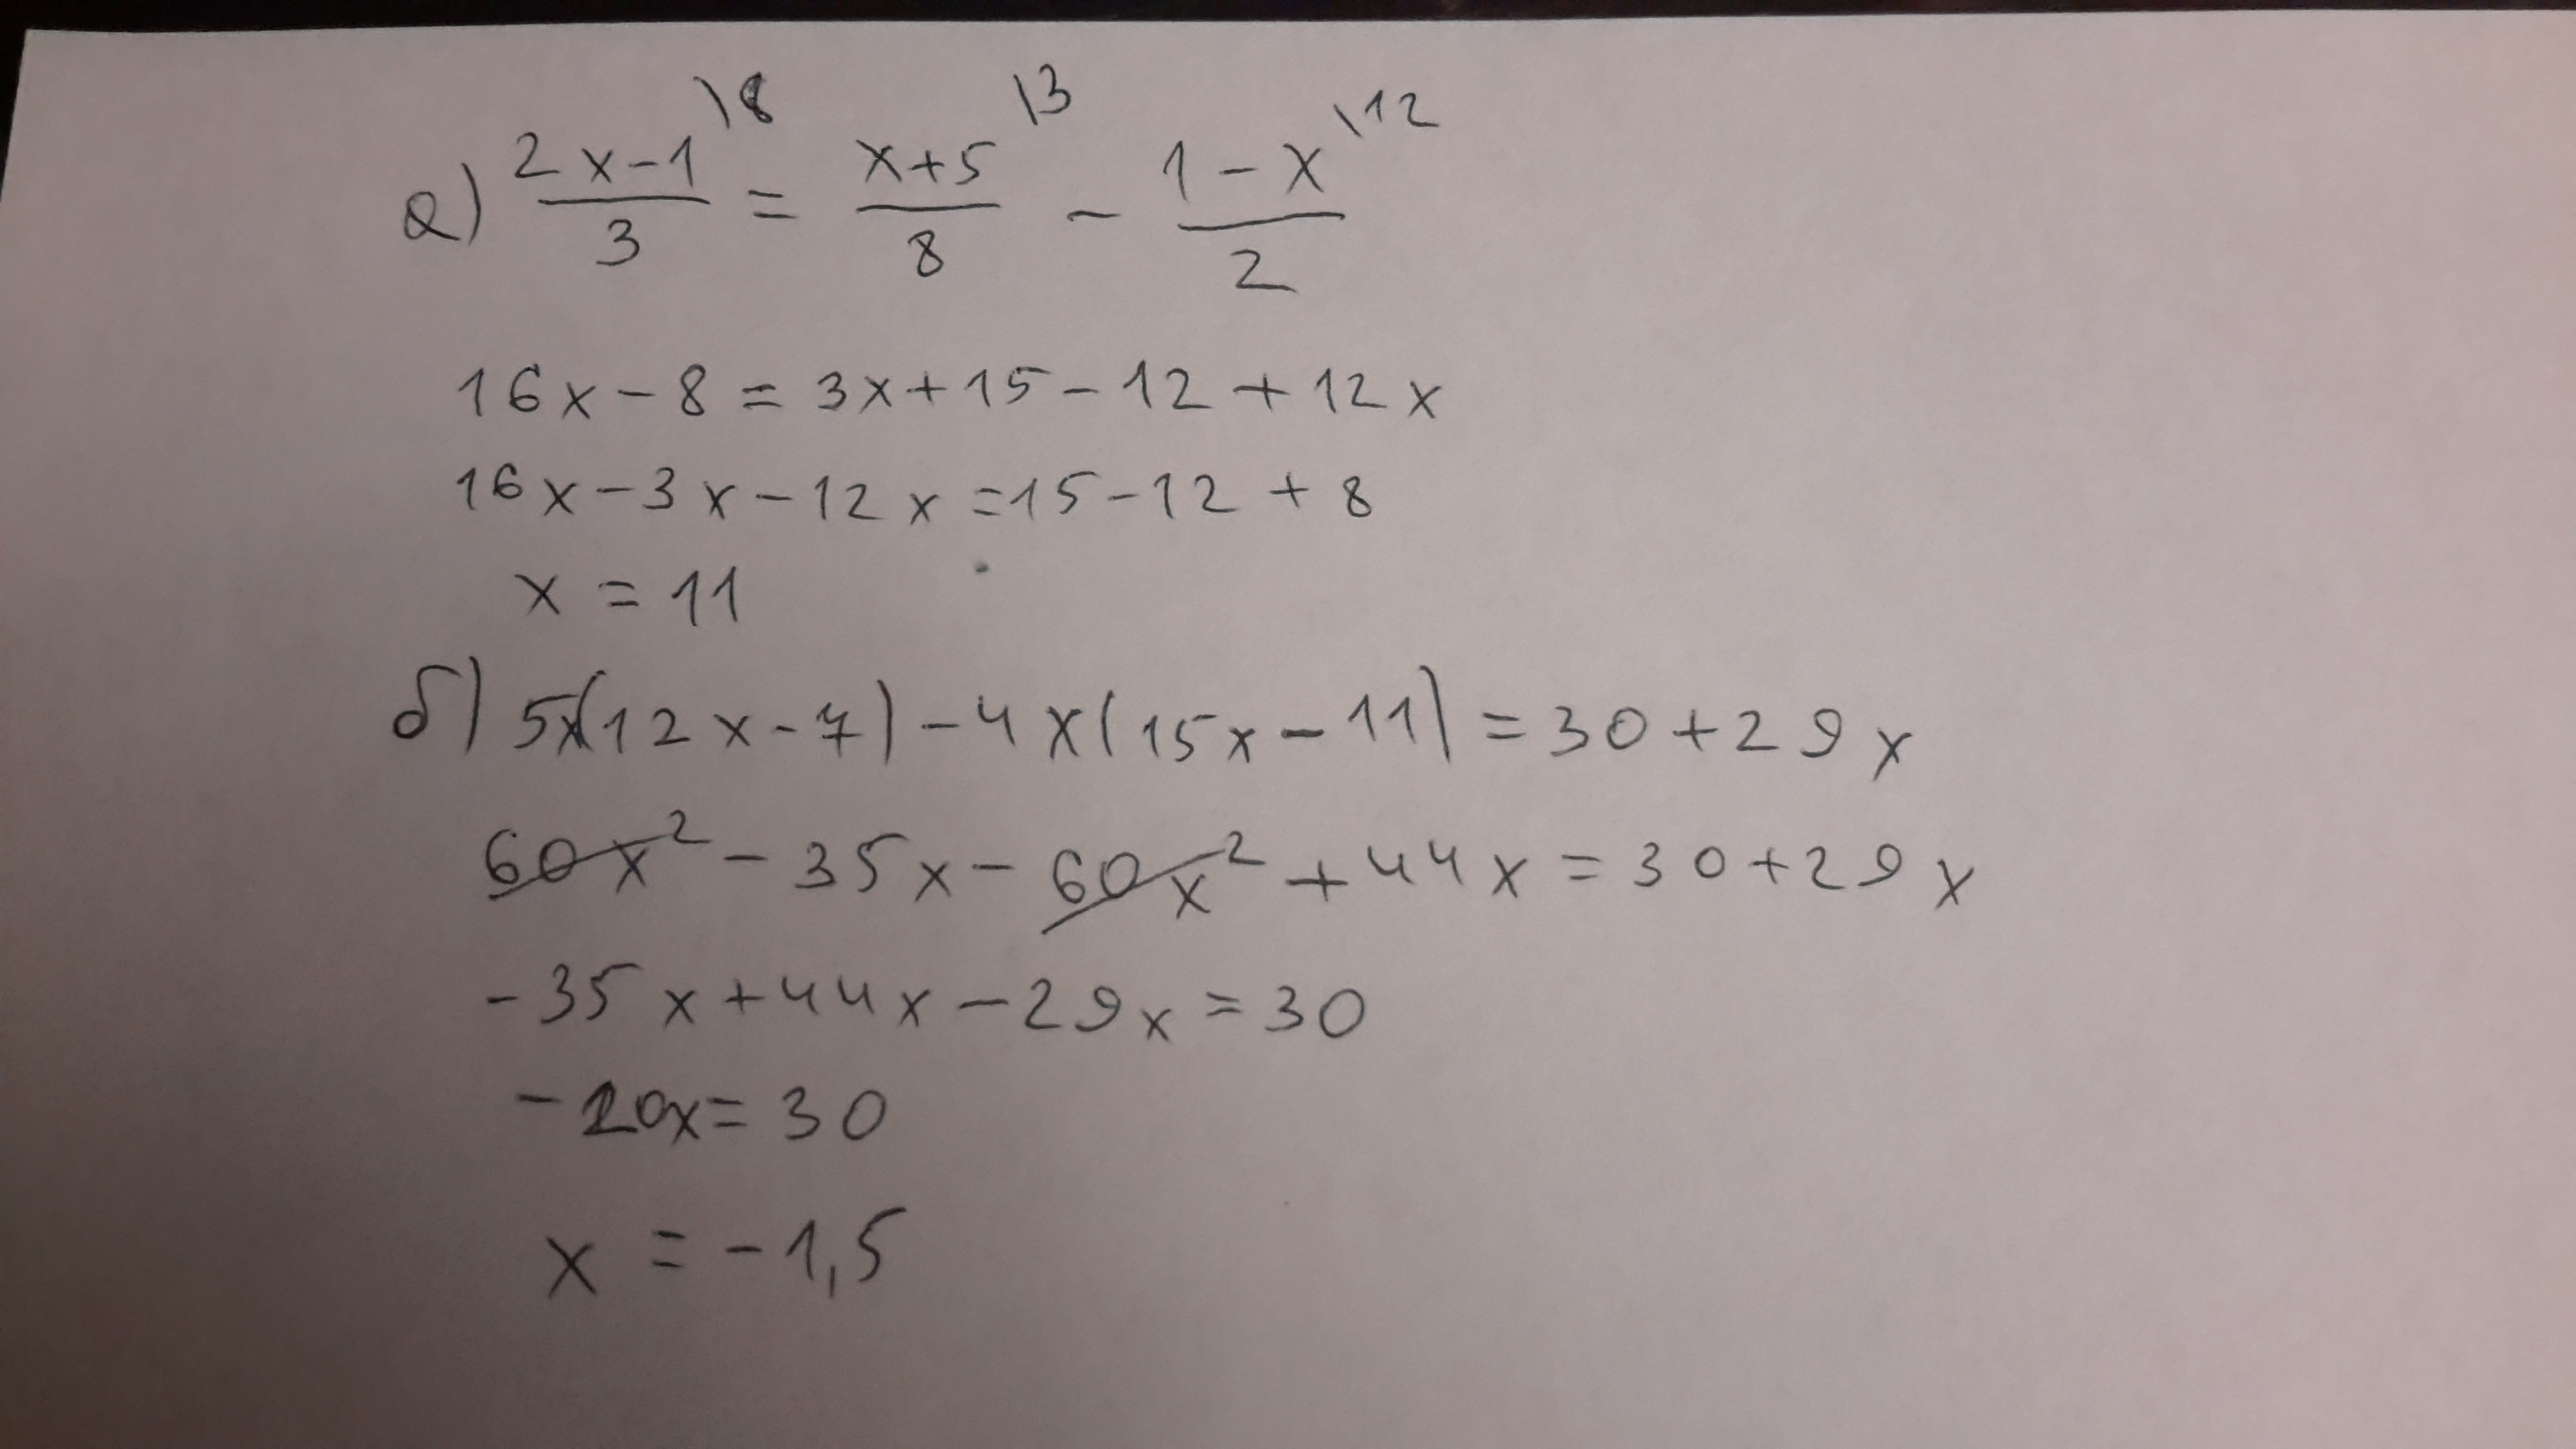 а) (2x-1)/3 \8 = (x+5)/8 \3 - (1-x)/2 \12
16x-8=3x+15-12+12x
16x-3x-12x=15-12+8
x=11
б) 5x(12x-7)-4x(15x-11)=30+29x
60x²-35x-60x²+44x=30+29x
-35x+44x-29x=30
-20x=30
x=-1,5